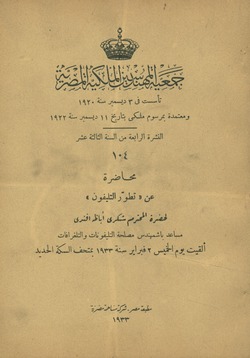 جمعية المهندسين الملكية المصرية
تأسست فى ٣ ديسمبر سنة ١٩٢٠
ومعتمدة بمرسوم ملكى بتاريخ ١١ ديسمبر سنة ١٩٢٢
النشرة الرابعة من السنة الثالثة عشر
١٠٤
محاضرة
عن « تطور التليفون »
لحضرة المحترم شكرى أباظه افندى
مساعد باشمهندس مصلحة التليفونات والتلغرافات
ألقيت يوم الخميس ٢ فبراير سنة ١٩٣٣ بمتحف السكة الحديد
مطبعة مصر. شركة مساهمة مصرية
١٩٣٣